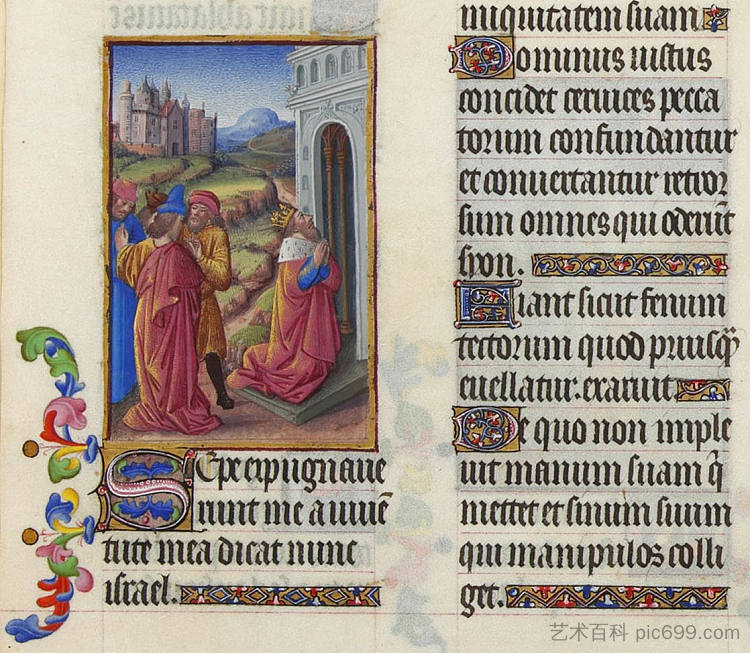 Sepe expugnaue
runt me a iuuētute
tute mea dicat nunc
israel.
iniquitatem suam
Dominus iustus
concidet ceruices pecca
torum confundantur
et conuertantur retror
sum omnes qui oderūt
syon.
Fiant sicut fenum
tectorum quod priusq̄
euellatur. exaruit.
De quo non imple
uit manum suam q̄
mettet et sinum suum
qui manipulos colli
get.
艺术百科 pic699.com